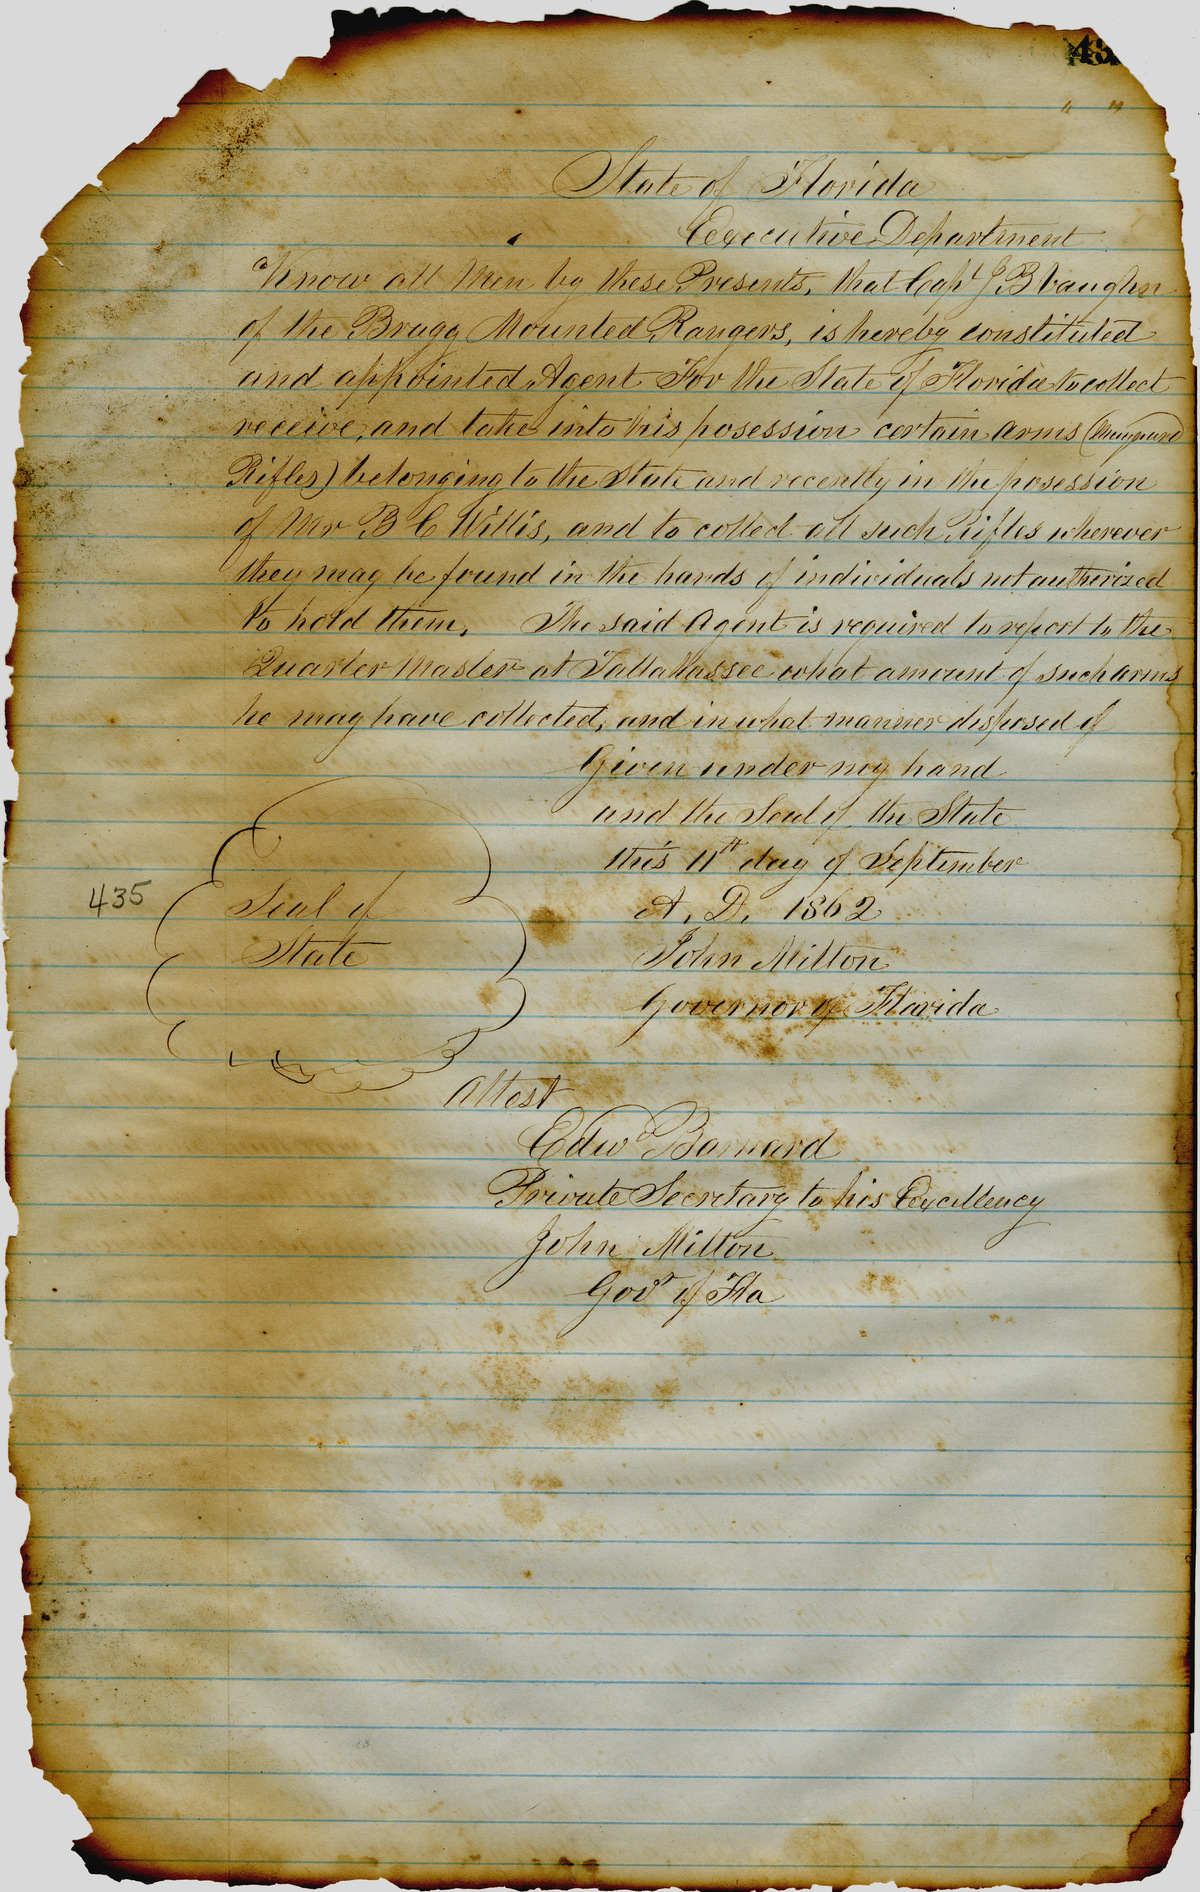 State of Florida
Executive Department
Know all Men by these Presents, that Capt J B Vaughn
of the Bragg Mounted Rangers, is hereby constituted
and appointed Agent For the State of Florida to collect
receive, and take into his posession certain arms (Maynard
Rifles) belonging to the State and recently in the posession
of Mr B C Willis, and to collect all such Rifles wherever
they may be found in the hands of individuals not authorized
to hold them. The said Agent is required to report to the
Quarter Master at Tallahassee what amount of such arms
he may have collected, and in what manner disposed of
Given under my hand
and the Seal of the State
this 11th day of September
435
Seal of
State
A. D. 1862
John Milton
Governor of Florida
Attest
Edwd Barnard
Private Secretary to his Excellency
John Milton
Govr of Fla